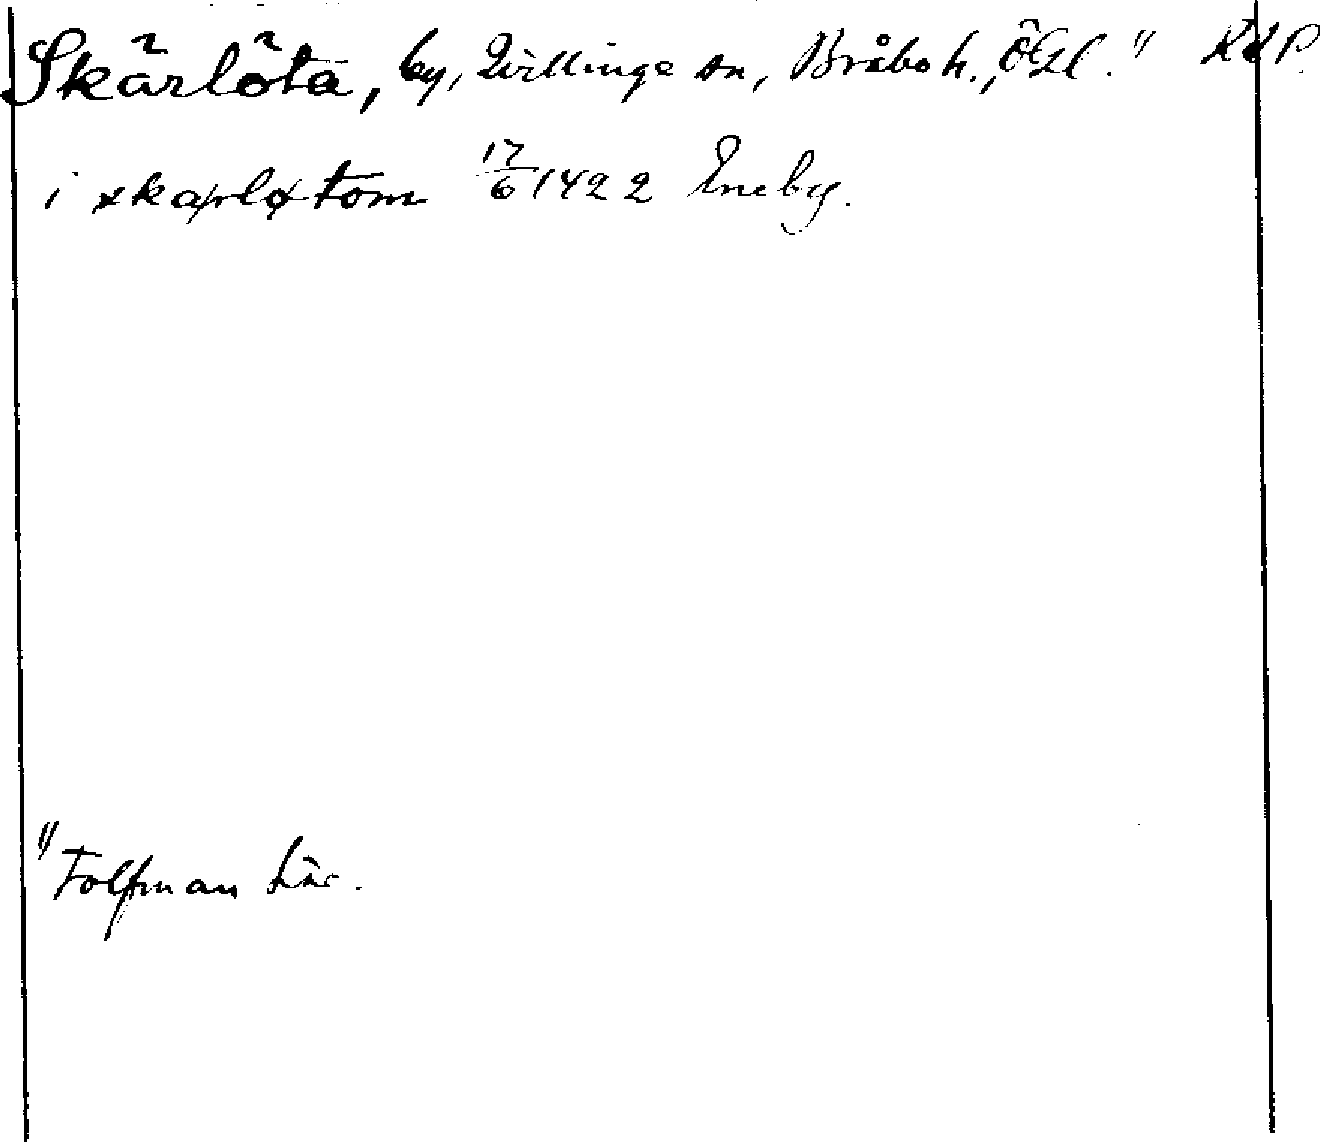 Skärlöta, by, Kvillinge sn, Bråbo h., Ögl. 1) RAP.
i skærløtom 17/6 1422 Eneby.
1) Tolfman här.